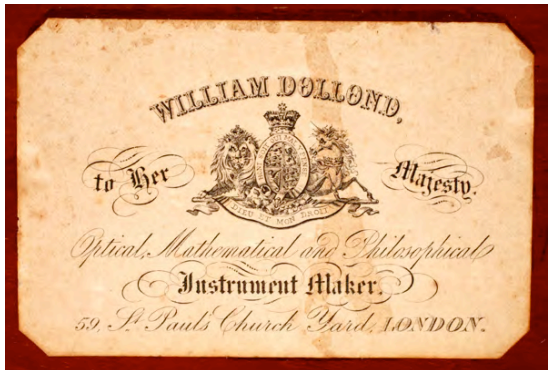 WILLIAM DOLLOND,
to Her Majesty.
DIEU ET MON DROIT
Optical, Mathematical and Philosophical
Instrument Maker.
59, St. Paul's Church Yard, LONDON.